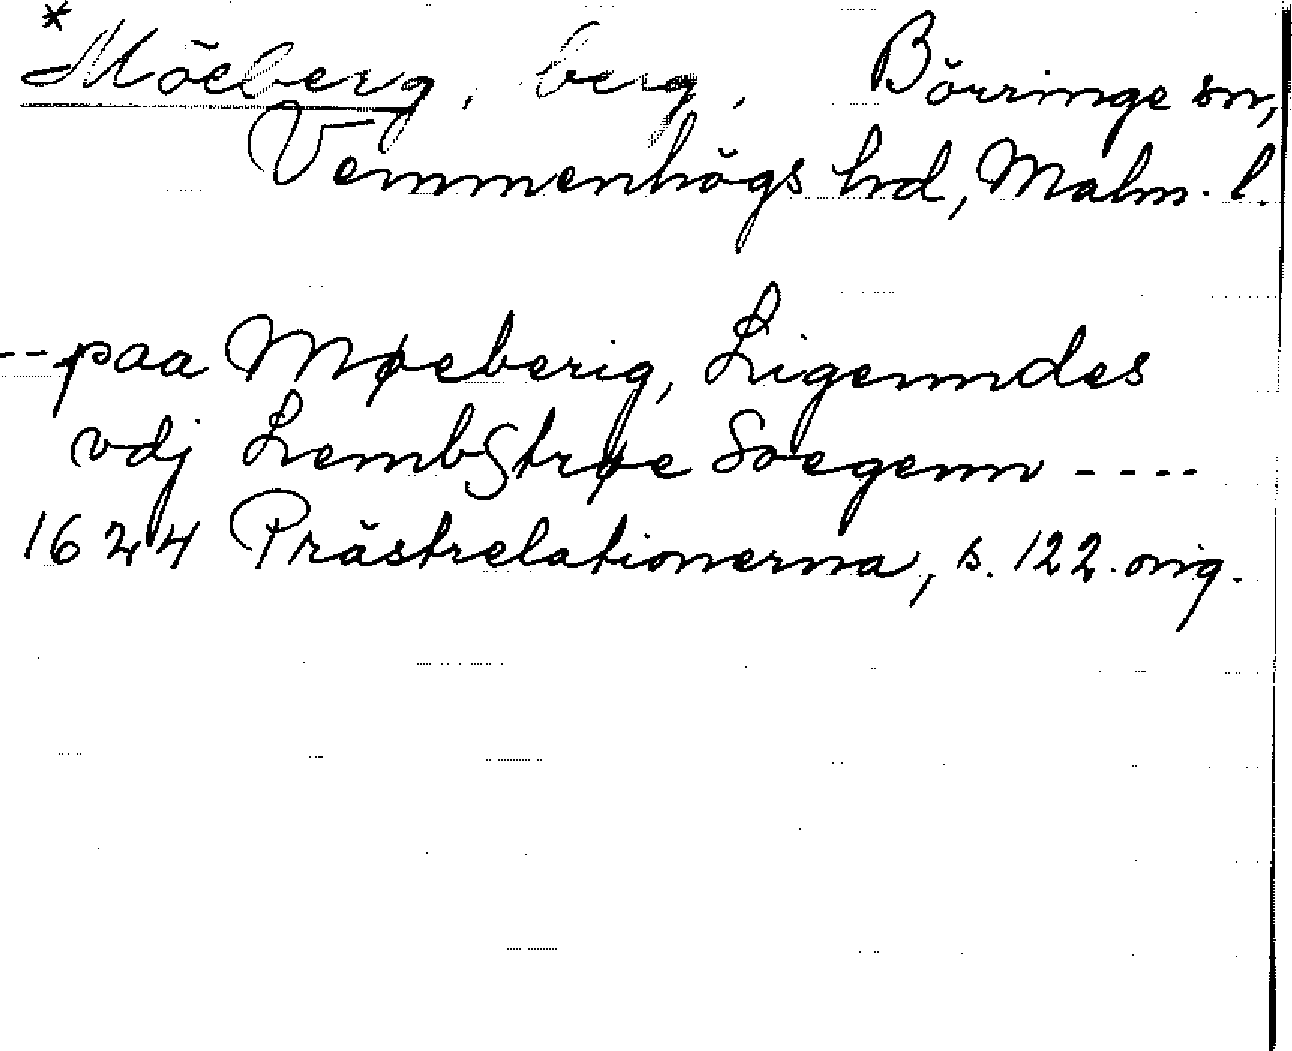 *Möeberg, berg, Börringe sn,
Vemmenhögs hd, Malm. l.
-- paa Møeberig, Ligenndes
vdj LembStrøe Soegenn ----
1624 Prästrelationerna, s. 122. orig.